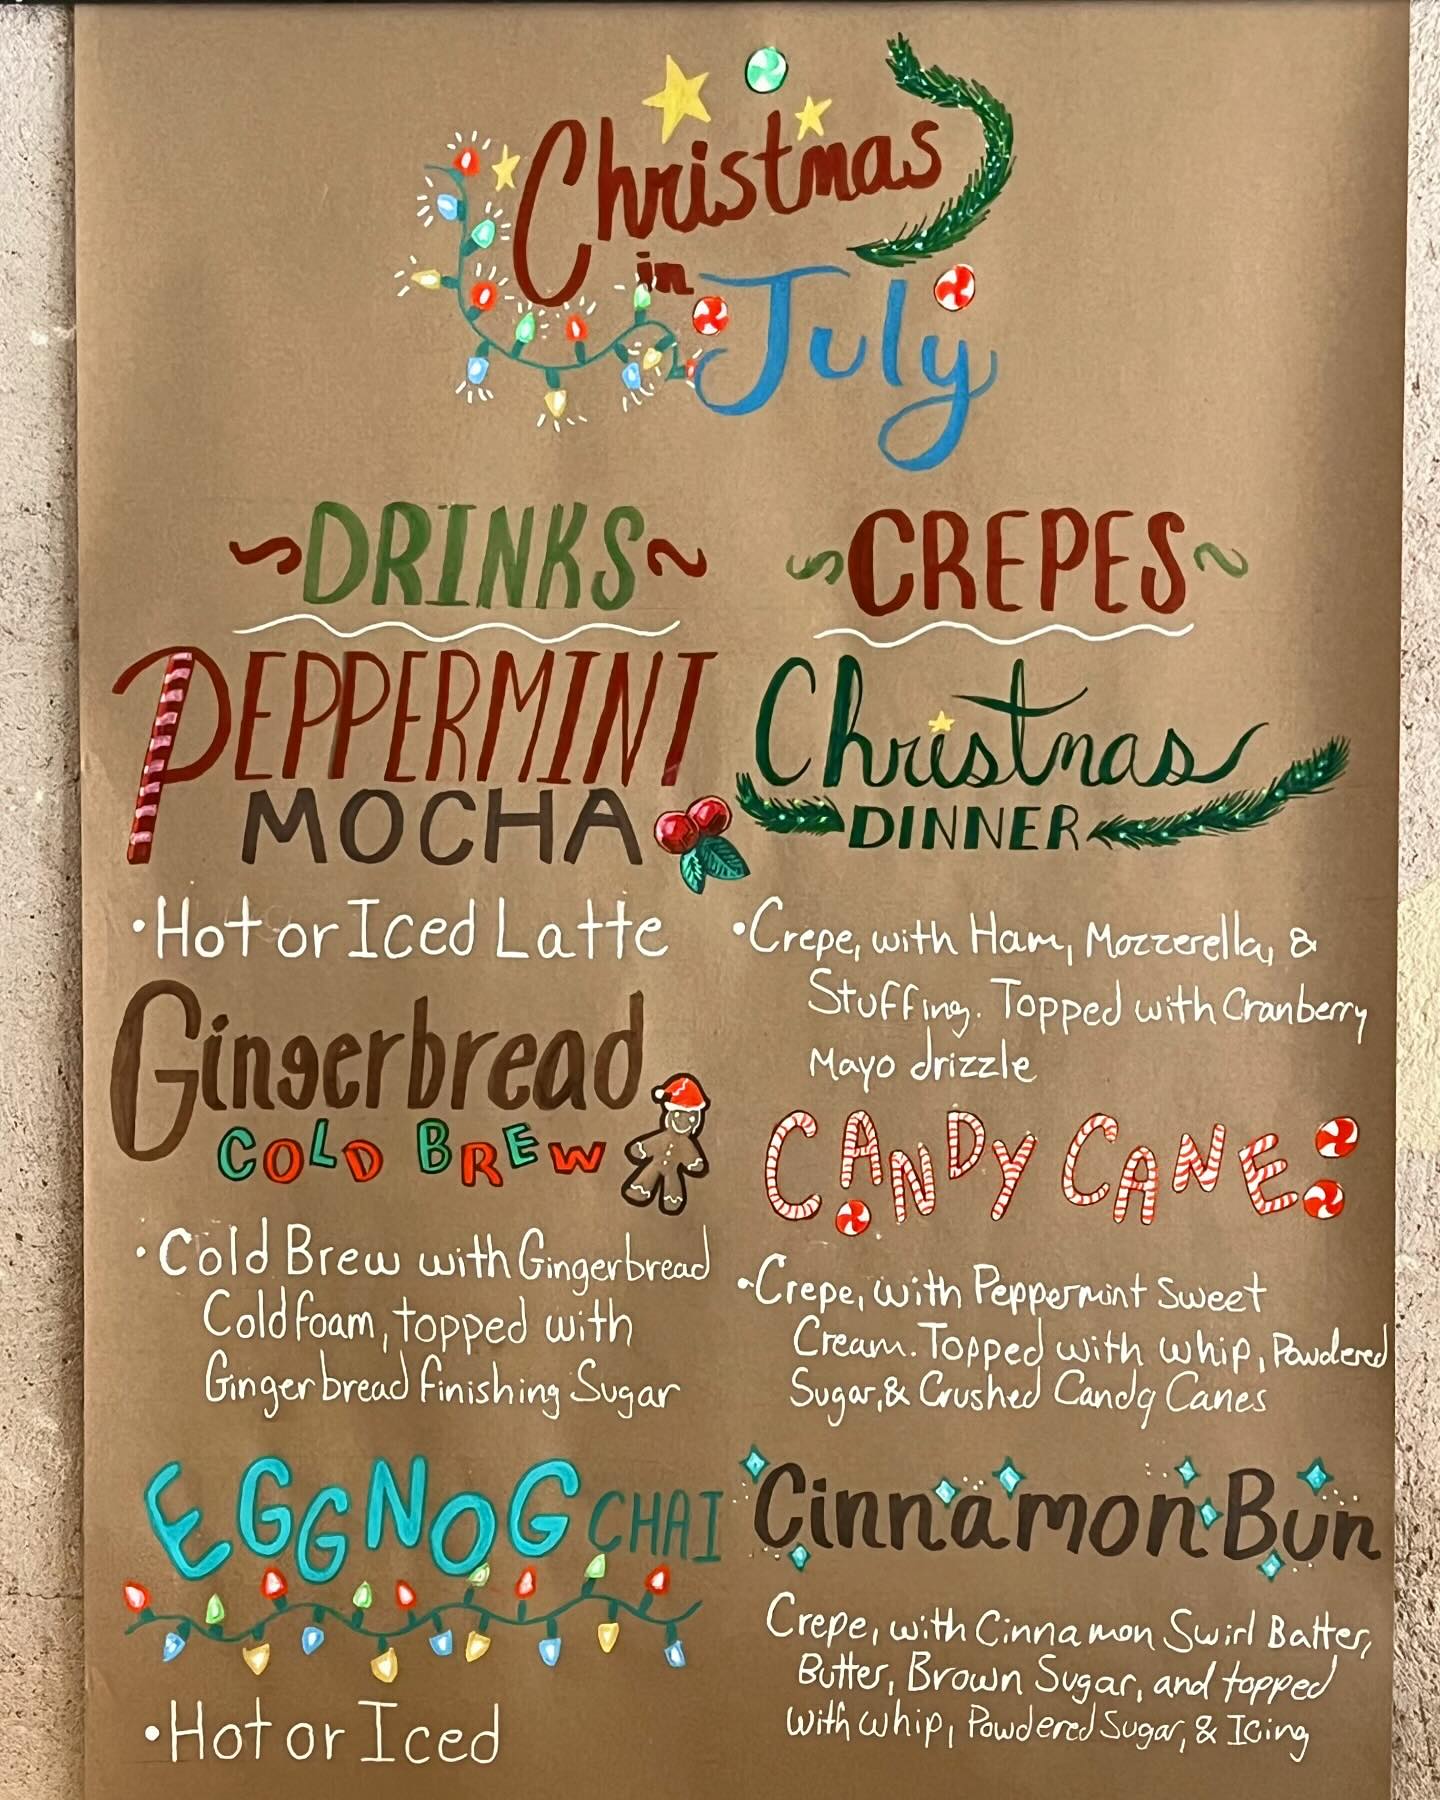 Christmas
in
July
DRINKS
PEPPERMINT
MOCHA
•Hot or Iced Latte
Gingerbread
COLD BREW
•Cold Brew with Gingerbread
Cold foam, topped with
Gingerbread finishing Sugar
EGGNOG CHAI
•Hot or Iced
CREPES
Christmas
DINNER
•Crepe, with Ham, Mozzerella, &
Stuffing. Topped with Cranberry
Mayo drizzle
CANDY CANE
•Crepe, with Peppermint Sweet
Cream. Topped with whip, Powdered
Sugar, & Crushed Candy Canes
Cinnamon Bun
Crepe, with Cinnamon Swirl Batter,
Butter, Brown Sugar, and topped
with whip, Powdered Sugar, & Icing